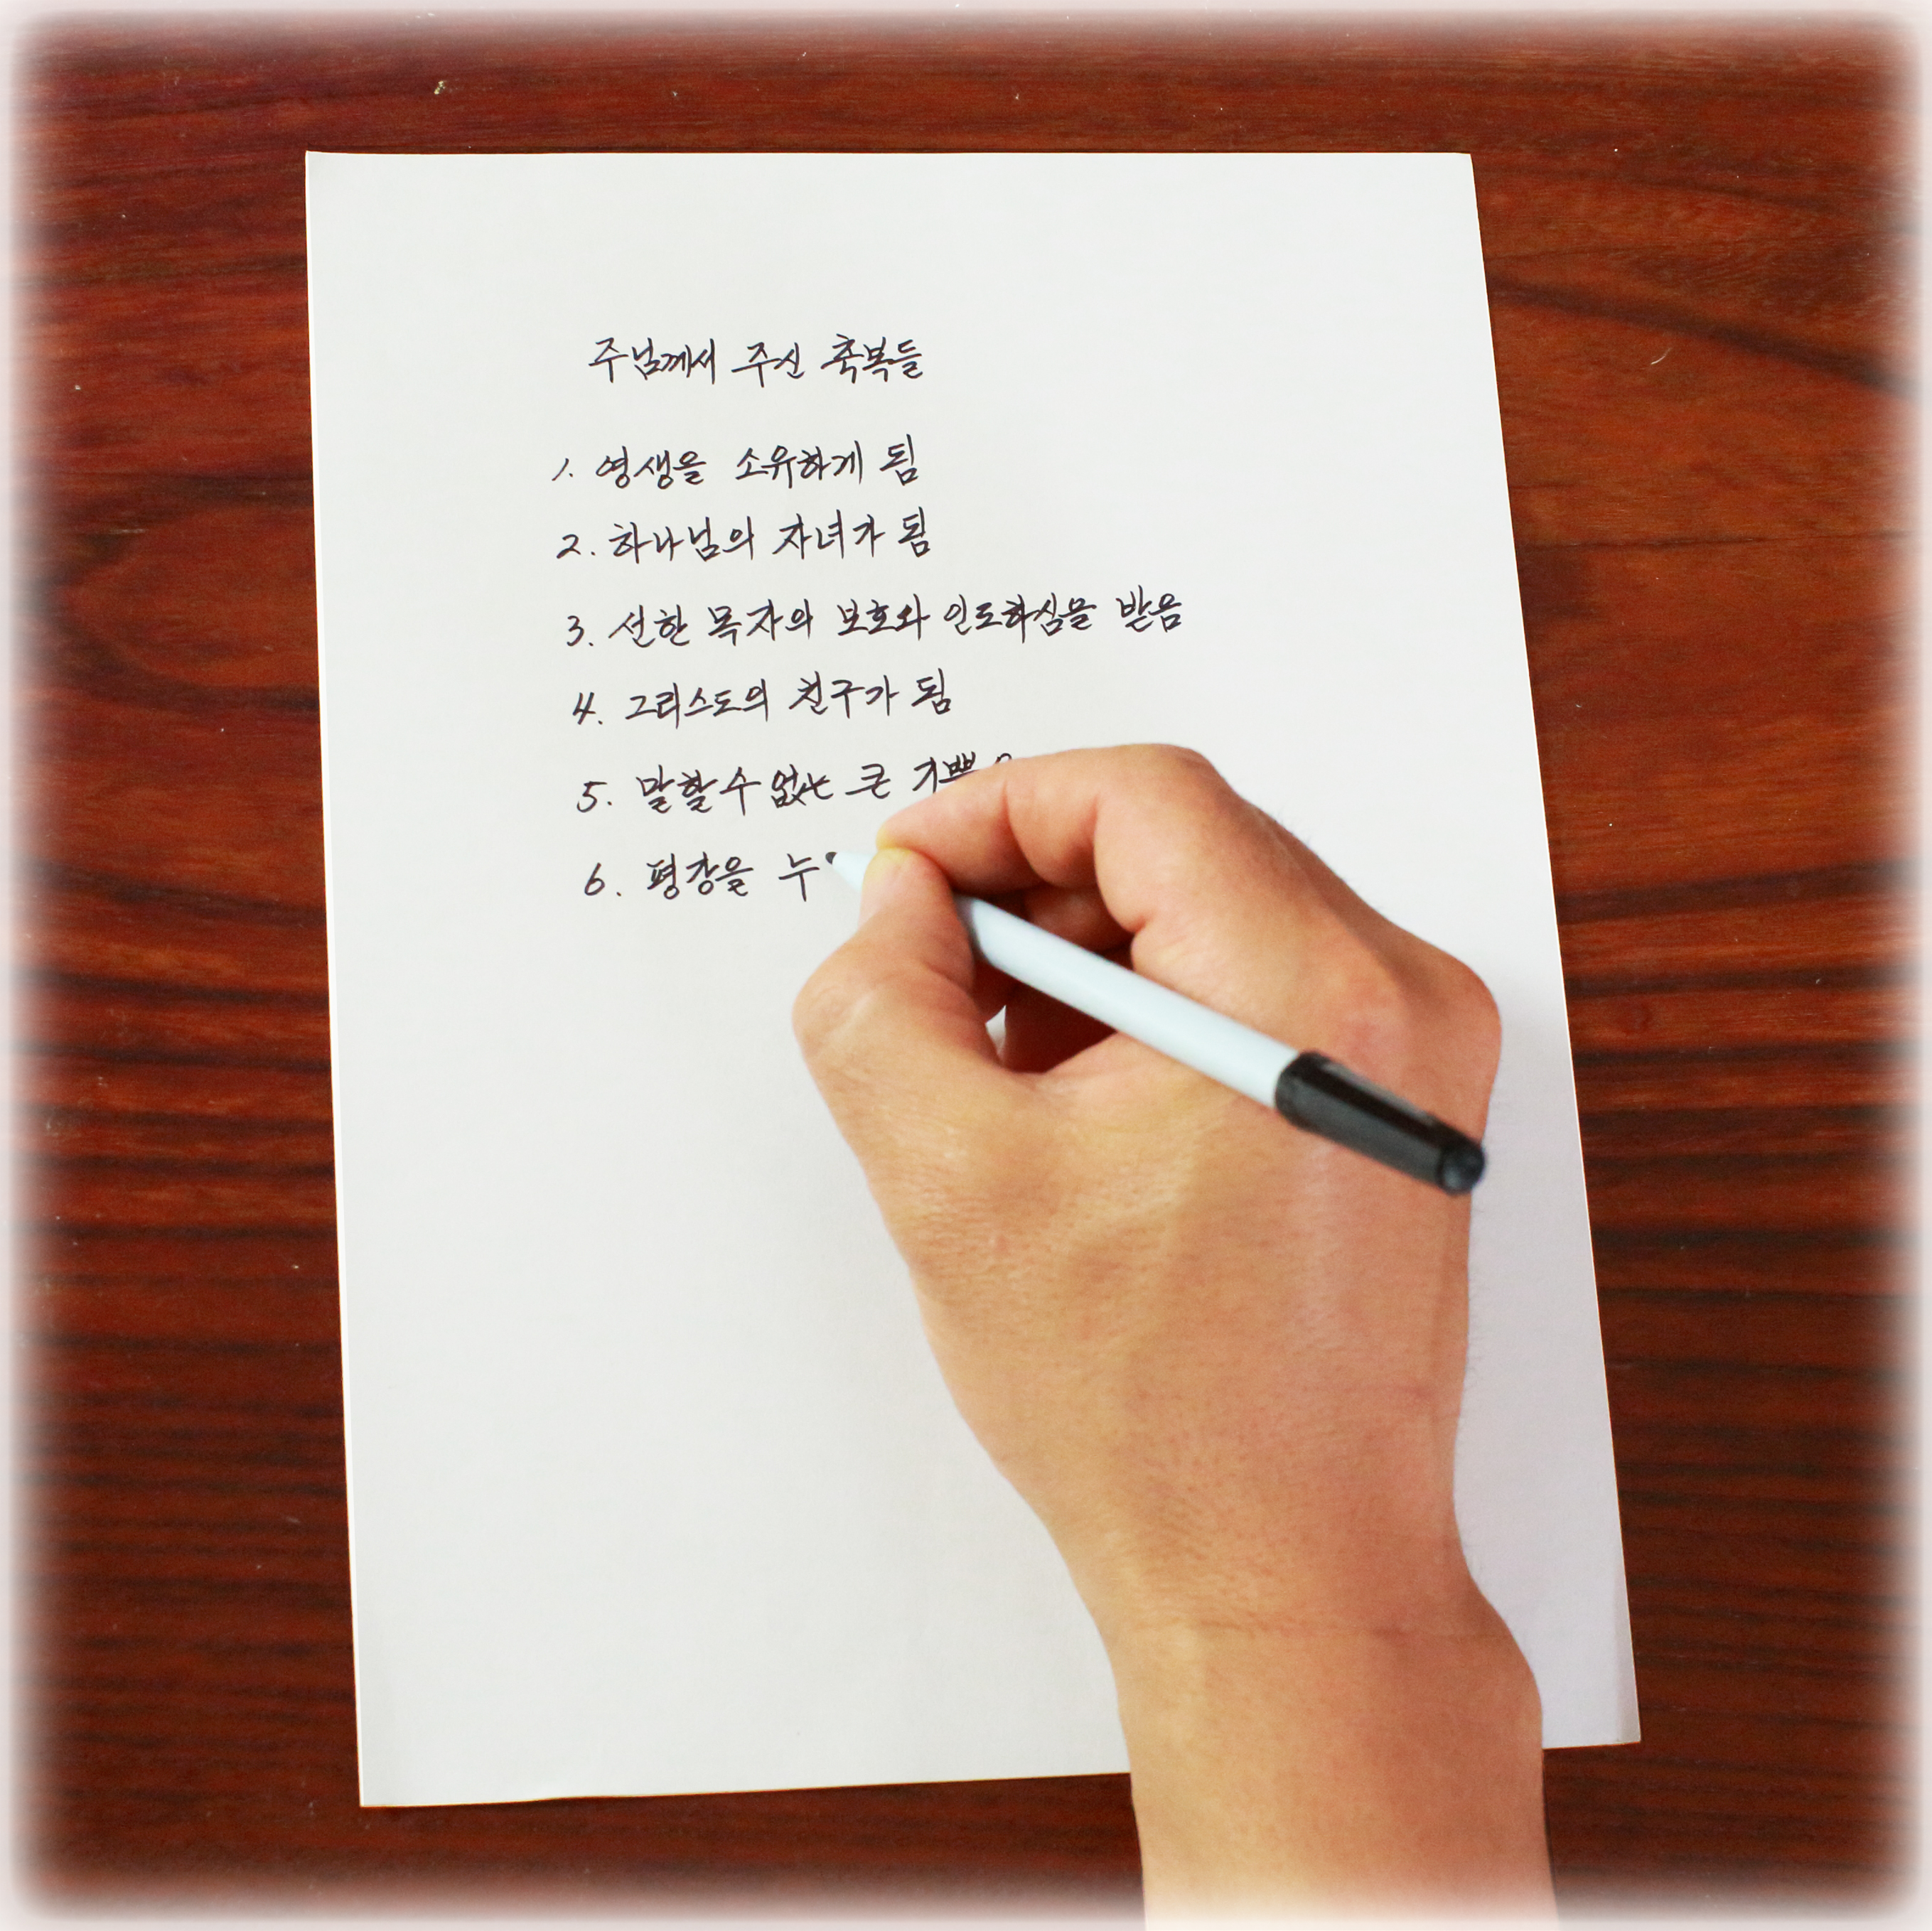 주님께서 주신 축복들
1. 영생을 소유하게 됨
2. 하나님의 자녀가 됨
3. 선한 목자의 보호와 인도하심을 받음
4. 그리스도의 친구가 됨
5. 말할 수 없는 큰
6. 평강을 누